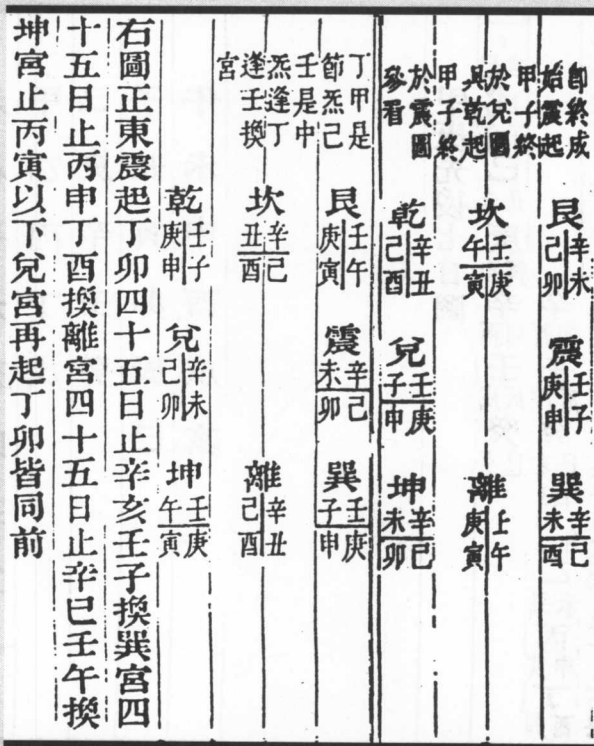 卽終成
始震起
甲子終
於兌圖
與乾起
甲子終
於震圖
參看
艮
辛未
己卯
震
壬子
庚申
巽
辛未
己酉
坎
壬午
庚寅
離
上午
庚寅
乾
辛丑
己酉
兌
壬子
庚申
坤
辛未
己卯
丁甲是
節炁己
壬是中
炁逢丁
逢壬換
宮
艮
壬午
庚寅
震
辛未
己卯
巽
壬子
庚申
坎
辛丑
己酉
離
辛丑
己酉
乾
壬子
庚申
兌
辛未
己卯
坤
壬午
庚寅
右圖正東震起丁卯四十五日止辛亥壬子換巽宮四
十五日止丙申丁酉換離宮四十五日止辛巳壬午換
坤宮止丙寅以下兌宮再起丁卯皆同前